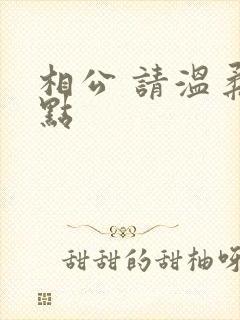 相公 請溫柔
點
甜甜的甜柚呀